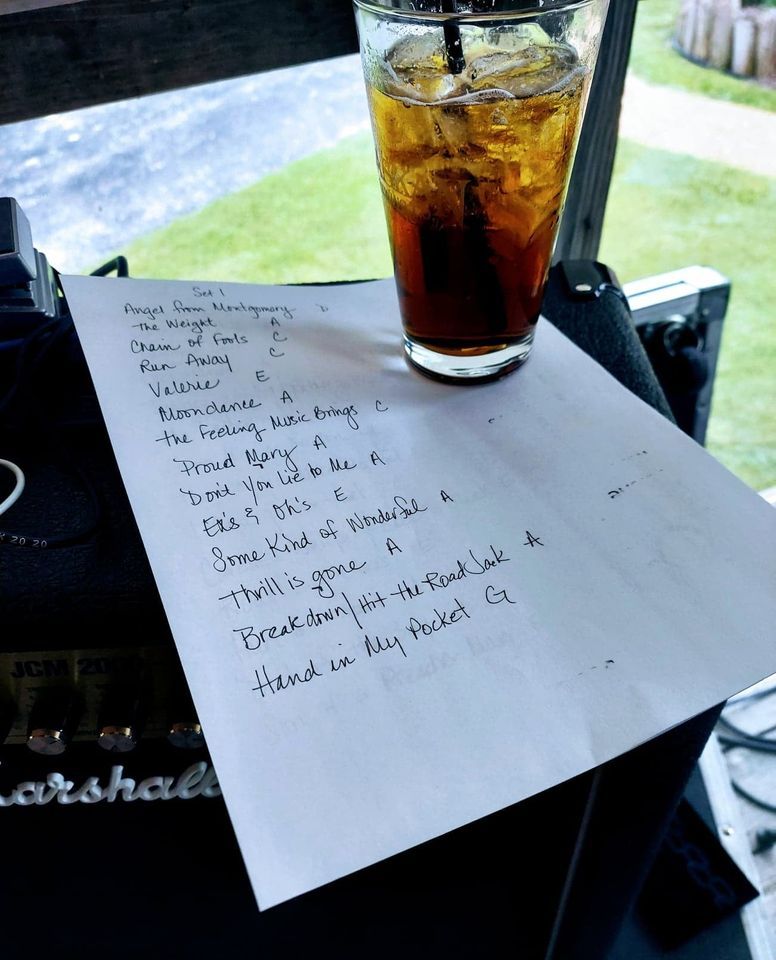 Set 1
Angel from Montgomery D
The Weight A
Chain of Fools C
Run Away C
Valerie E
Moondance A
the Feeling Music Brings C
Proud Mary A
Don't You Lie to Me A
Ex's & Oh's E
Some Kind of Wonderful A
Thrill is gone A
Breakdown/Hit the Road Jack A
Hand in My Pocket G
JCM 2000
Marshall